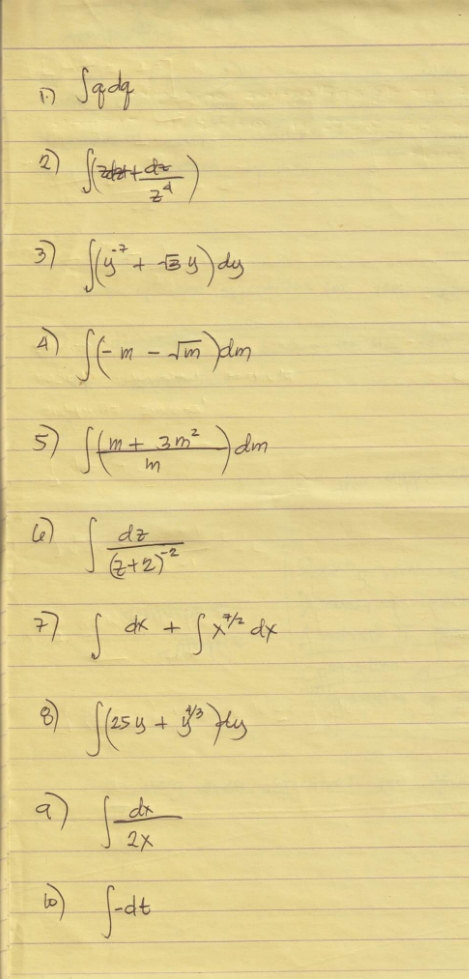 1) ∫qdq
2) ∫(zdz + dz/z⁴)
3) ∫(y⁻⁷ + √3 y)dy
4) ∫(-m - √m)dm
5) ∫((m + 3m²)/m)dm
6) ∫ dz/(z+2)⁻²
7) ∫ dx + ∫x^(7/2) dx
8) ∫(25y + y^(1/3))dy
9) ∫ dx/2x
10) ∫-dt